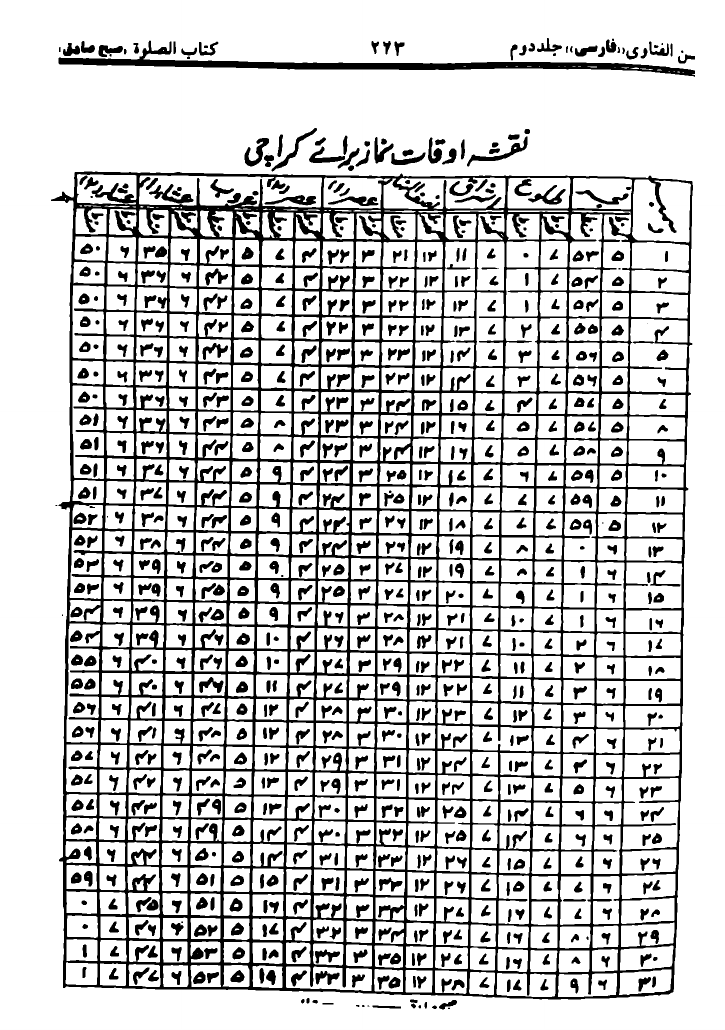 سن الفتاوی ''فارسی'' جلد دوم ۲۶۳ کتاب الصلوة (صبح صادق)
نقشہ اوقات نماز برائے کراچی
دسمبر فجر طلوع اشراق نصف النہار عصر(۱) عصر(۲) غروب عشاء(۱) عشاء(۲)
۱ ۵ ۵۳ ۷ ۰ ۷ ۱۱ ۱۲ ۲۱ ۳ ۲۲ ۴ ۷ ۵ ۴۲ ۶ ۳۵ ۶ ۵۰
۲ ۵ ۵۴ ۷ ۱ ۷ ۱۲ ۱۲ ۲۲ ۳ ۲۲ ۴ ۷ ۵ ۴۲ ۶ ۳۶ ۶ ۵۰
۳ ۵ ۵۴ ۷ ۱ ۷ ۱۲ ۱۲ ۲۲ ۳ ۲۲ ۴ ۷ ۵ ۴۲ ۶ ۳۶ ۶ ۵۰
۴ ۵ ۵۵ ۷ ۲ ۷ ۱۳ ۱۲ ۲۲ ۳ ۲۲ ۴ ۷ ۵ ۴۲ ۶ ۳۶ ۶ ۵۰
۵ ۵ ۵۶ ۷ ۳ ۷ ۱۴ ۱۲ ۲۳ ۳ ۲۳ ۴ ۷ ۵ ۴۲ ۶ ۳۶ ۶ ۵۰
۶ ۵ ۵۶ ۷ ۳ ۷ ۱۴ ۱۲ ۲۳ ۳ ۲۳ ۴ ۷ ۵ ۴۳ ۶ ۳۶ ۶ ۵۰
۷ ۵ ۵۷ ۷ ۴ ۷ ۱۵ ۱۲ ۲۴ ۳ ۲۳ ۴ ۷ ۵ ۴۳ ۶ ۳۶ ۶ ۵۰
۸ ۵ ۵۷ ۷ ۵ ۷ ۱۶ ۱۲ ۲۴ ۳ ۲۳ ۴ ۸ ۵ ۴۳ ۶ ۳۶ ۶ ۵۱
۹ ۵ ۵۸ ۷ ۵ ۷ ۱۶ ۱۲ ۲۴ ۳ ۲۳ ۴ ۸ ۵ ۴۴ ۶ ۳۶ ۶ ۵۱
۱۰ ۵ ۵۹ ۷ ۶ ۷ ۱۷ ۱۲ ۲۵ ۳ ۲۴ ۴ ۹ ۵ ۴۴ ۶ ۳۷ ۶ ۵۱
۱۱ ۵ ۵۹ ۷ ۷ ۷ ۱۸ ۱۲ ۲۵ ۳ ۲۴ ۴ ۹ ۵ ۴۴ ۶ ۳۷ ۶ ۵۱
۱۲ ۵ ۵۹ ۷ ۷ ۷ ۱۸ ۱۲ ۲۶ ۳ ۲۴ ۴ ۹ ۵ ۴۴ ۶ ۳۸ ۶ ۵۲
۱۳ ۶ ۰ ۷ ۸ ۷ ۱۹ ۱۲ ۲۶ ۳ ۲۴ ۴ ۹ ۵ ۴۴ ۶ ۳۸ ۶ ۵۲
۱۴ ۶ ۱ ۷ ۸ ۷ ۱۹ ۱۲ ۲۷ ۳ ۲۵ ۴ ۹ ۵ ۴۵ ۶ ۳۹ ۶ ۵۳
۱۵ ۶ ۱ ۷ ۹ ۷ ۲۰ ۱۲ ۲۷ ۳ ۲۵ ۴ ۹ ۵ ۴۵ ۶ ۳۹ ۶ ۵۳
۱۶ ۶ ۱ ۷ ۱۰ ۷ ۲۱ ۱۲ ۲۸ ۳ ۲۶ ۴ ۹ ۵ ۴۵ ۶ ۳۹ ۶ ۵۴
۱۷ ۶ ۲ ۷ ۱۰ ۷ ۲۱ ۱۲ ۲۸ ۳ ۲۶ ۴ ۱۰ ۵ ۴۶ ۶ ۳۹ ۶ ۵۴
۱۸ ۶ ۲ ۷ ۱۱ ۷ ۲۲ ۱۲ ۲۹ ۳ ۲۷ ۴ ۱۰ ۵ ۴۶ ۶ ۴۰ ۶ ۵۵
۱۹ ۶ ۳ ۷ ۱۱ ۷ ۲۲ ۱۲ ۲۹ ۳ ۲۷ ۴ ۱۱ ۵ ۴۶ ۶ ۴۰ ۶ ۵۵
۲۰ ۶ ۳ ۷ ۱۲ ۷ ۲۳ ۱۲ ۳۰ ۳ ۲۸ ۴ ۱۲ ۵ ۴۷ ۶ ۴۱ ۶ ۵۶
۲۱ ۶ ۴ ۷ ۱۳ ۷ ۲۴ ۱۲ ۳۰ ۳ ۲۸ ۴ ۱۲ ۵ ۴۸ ۶ ۴۱ ۶ ۵۶
۲۲ ۶ ۴ ۷ ۱۳ ۷ ۲۴ ۱۲ ۳۱ ۳ ۲۹ ۴ ۱۲ ۵ ۴۸ ۶ ۴۲ ۶ ۵۷
۲۳ ۶ ۵ ۷ ۱۳ ۷ ۲۴ ۱۲ ۳۱ ۳ ۲۹ ۴ ۱۳ ۵ ۴۸ ۶ ۴۲ ۶ ۵۷
۲۴ ۶ ۶ ۷ ۱۴ ۷ ۲۵ ۱۲ ۳۲ ۳ ۳۰ ۴ ۱۳ ۵ ۴۹ ۶ ۴۳ ۶ ۵۷
۲۵ ۶ ۶ ۷ ۱۴ ۷ ۲۵ ۱۲ ۳۲ ۳ ۳۰ ۴ ۱۴ ۵ ۴۹ ۶ ۴۳ ۶ ۵۸
۲۶ ۶ ۷ ۷ ۱۵ ۷ ۲۶ ۱۲ ۳۳ ۳ ۳۱ ۴ ۱۴ ۵ ۵۰ ۶ ۴۴ ۶ ۵۹
۲۷ ۶ ۷ ۷ ۱۵ ۷ ۲۶ ۱۲ ۳۳ ۳ ۳۱ ۴ ۱۵ ۵ ۵۱ ۶ ۴۴ ۶ ۵۹
۲۸ ۶ ۷ ۷ ۱۶ ۷ ۲۷ ۱۲ ۳۴ ۳ ۳۲ ۴ ۱۶ ۵ ۵۱ ۶ ۴۵ ۷ ۰
۲۹ ۶ ۸ ۷ ۱۶ ۷ ۲۷ ۱۲ ۳۴ ۳ ۳۲ ۴ ۱۷ ۵ ۵۲ ۶ ۴۶ ۷ ۰
۳۰ ۶ ۸ ۷ ۱۶ ۷ ۲۷ ۱۲ ۳۵ ۳ ۳۳ ۴ ۱۸ ۵ ۵۳ ۶ ۴۷ ۷ ۱
۳۱ ۶ ۹ ۷ ۱۷ ۷ ۲۸ ۱۲ ۳۵ ۳ ۳۳ ۴ ۱۹ ۵ ۵۳ ۶ ۴۷ ۷ ۱